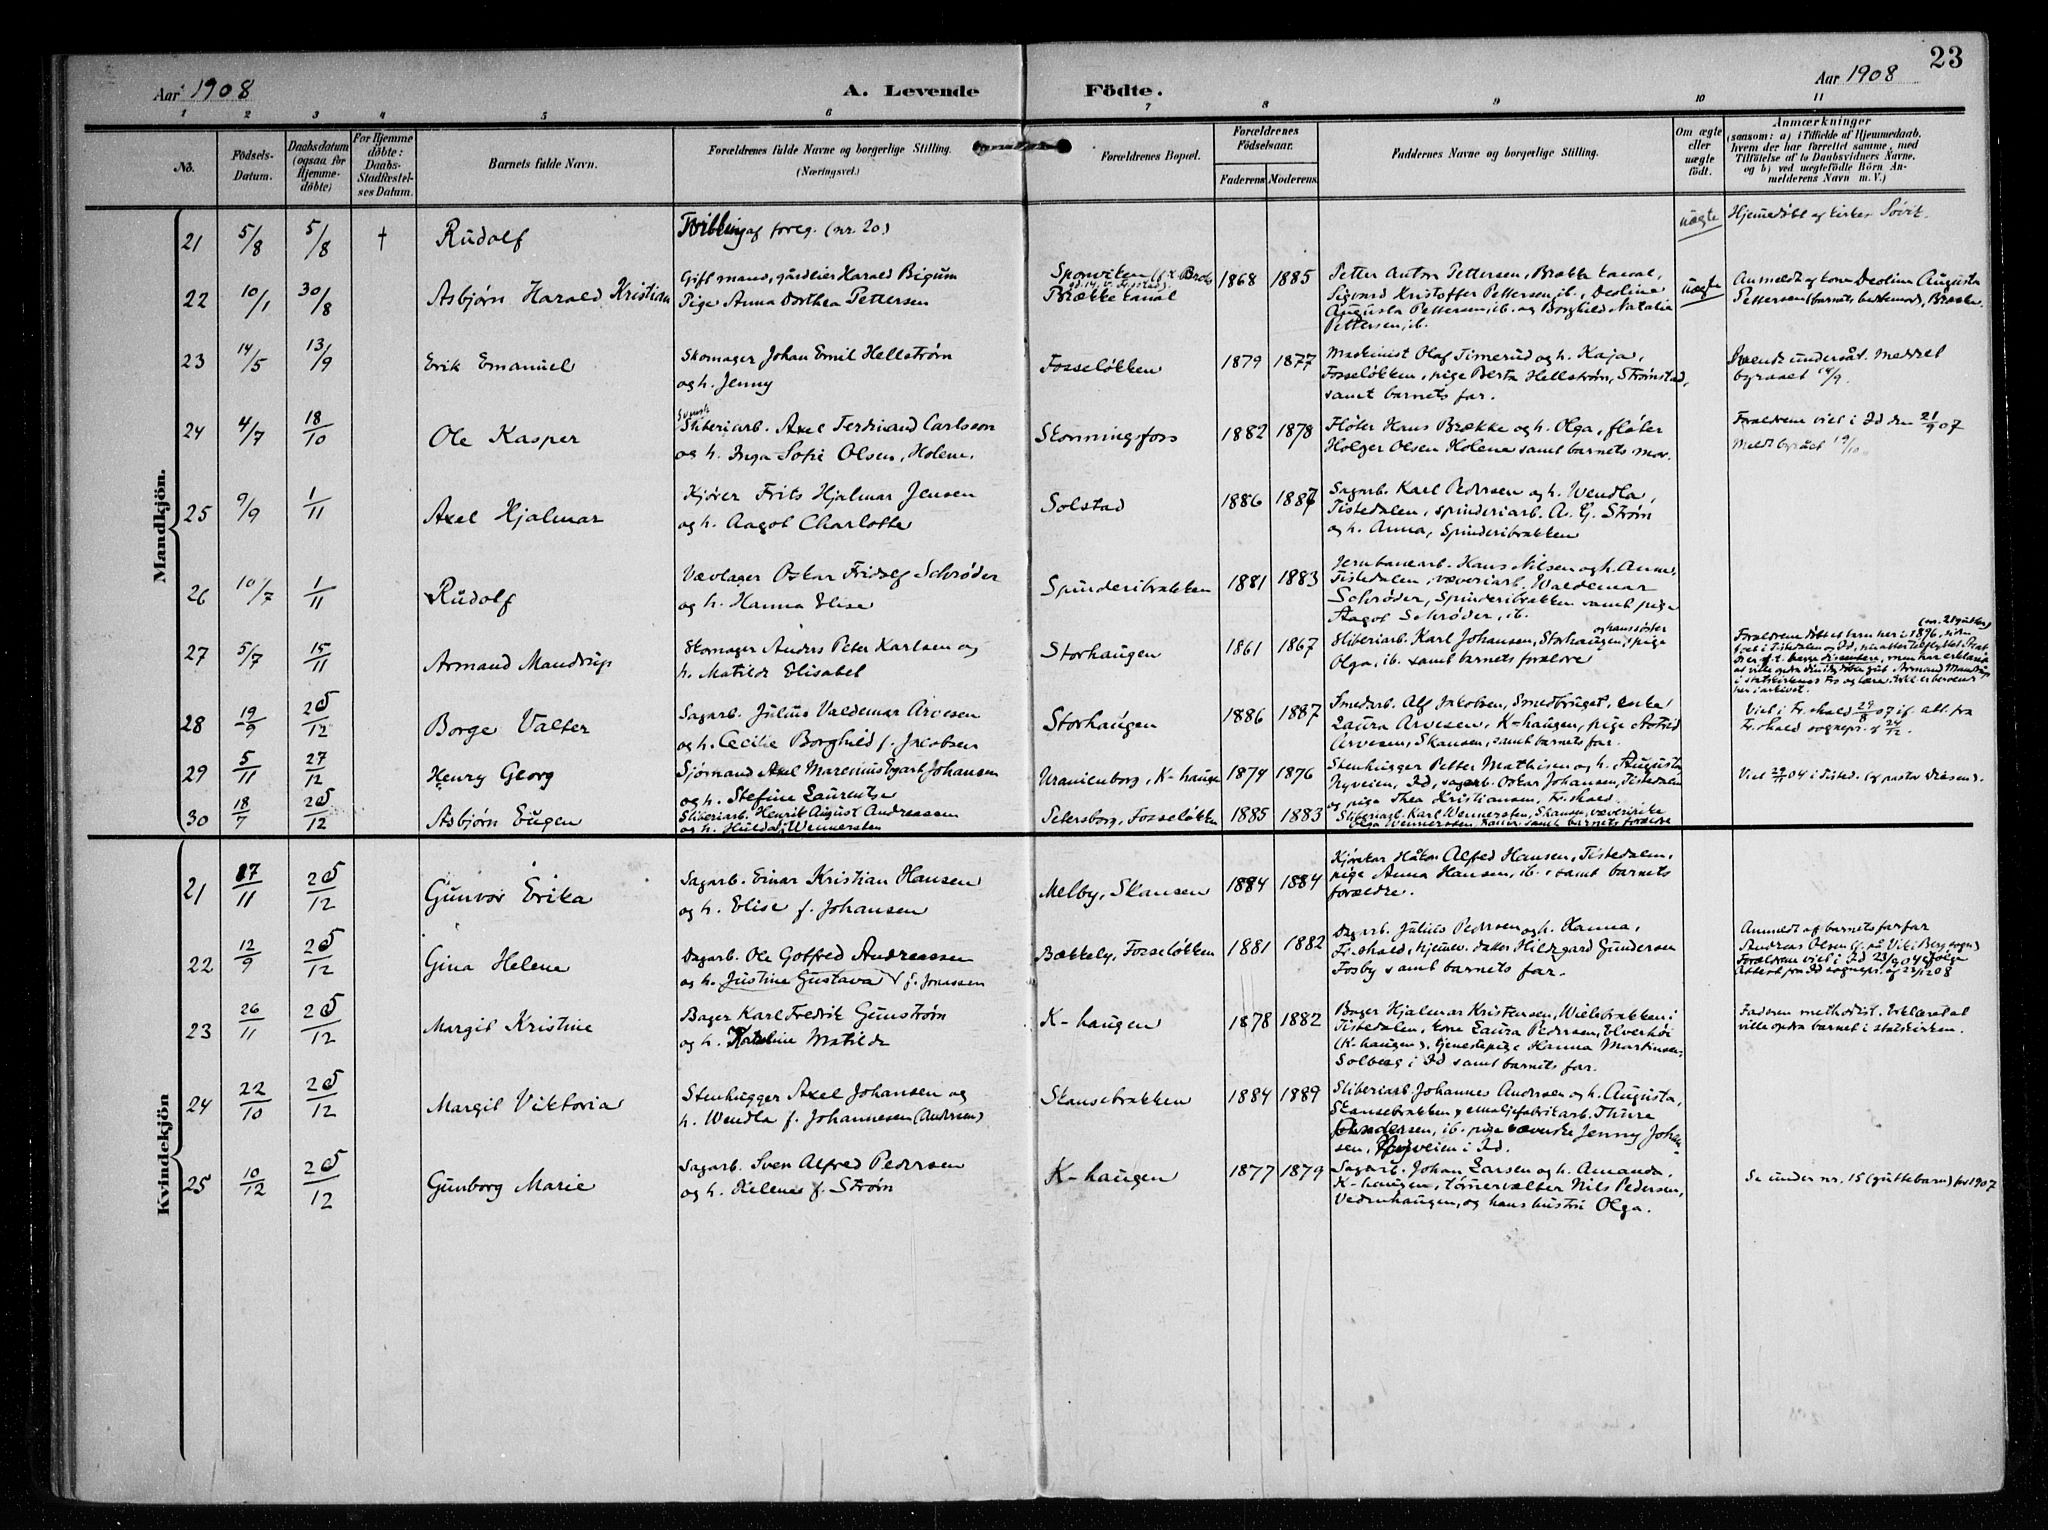 23
Aar 1908
A. Levende Födte.
Aar 1908
1 2 3 4 5 6 7 8 9 10 11
No.
Födsels-Datum.
Daabsdatum (ogsaa for Hjemme-döbte)
For Hjemme döbte: Daabs-Stadfæstel-ses Datum.
Barnets fulde Navn.
Forældrenes fulde Navne og borgerlige Stilling. (Næringsvei.)
Forældrenes Bopæl.
Forældrenes Födselsaar.
Faderens Moderens
Faddernes Navne og borgerlige Stilling.
Om ægte eller uægte födt.
Anmærkninger
(saasom: a) i Tilfælde af Hjemmedaab.
hvem der har forrettet samme, med
Tilföielse af to Daabsvidners Navne.
og b) ved uægtefödte Börn An-
melderens Navn m. V.)
Mandkjön.
21 5/8 5/8 † Rudolf
Tvilling af foreg. (nr. 20)
uægte
Hjemedöbt af
22 10/1 30/8 Asbjørn Harald Kristian
Gift mand, gårdeier Harald Bigum
Pige Anna Dorthea Pettersen
Sponviken
Brække kanal
1868 1885
Petter Anton Pettersen, Brække kanal,
Sigvard Kristoffer Pettersen, ib., Deolina
Augusta Pettersen, ib. og Borghild Natalia
Pettersen, ib.
uægte
Anmeldt af kone Deolina Augusta
Pettersen (barnets bestemod), Brække.
23 14/5 13/9 Erik Emanuel
Skomager Johan Emil Hellstrøm
og h. Jenny
Fosseløkken
1879 1877
Maskinist Olaf Timerud og h. Kaja,
Fosseløkken, pige Berta Hellstrøm, Strømstad,
samt barnets far.
Svensk undersåt. Meddelt
14/9.
24 4/7 18/10 Ole Kasper
Svensk
Sliberiarb. Axel Ferdinand Carlsson
og h. Inga Sofie Olsen, Holene.
Skonningsfoss
1882 1878
Fløter Hans Brække og h. Olga, fløter
Holger Olsen Holene samt barnets mor.
Forældrene viet i Id den 21/9 07
Meldt byrået 19/10
25 9/9 1/11 Axel Hjalmar
Kjører Frits Hjalmar Jensen
og h. Aagot Charlotte
Solstad
1886 1887
Sagarb. Karl Pedersen og h. Wendla,
Tistedalen, spinderiarb. A. G. Strøm
og h. Anna, Spinderibrakken
26 10/7 1/11 Rudolf
Vævlager Oskar Fridolf Schrøder
og h. Hanna Elise
Spinderibrakken
1881 1883
Jernbanearb. Hans Nilsen og h. Anna,
Tistedalen, væveriarb. Waldemar
Schrøder, Spinderibrakken samt pige
Aagot Schrøder, ib.
27 5/7 15/11 Armand Mandrup
Skomager Anders Peter Karlsen og
h. Matilde Elisabet
Storhaugen
1861 1867
og hans søster
Sliberiarb. Karl Johansen, Storhaugen, pige
Olga, ib. samt barnets forældre
her i arkivet.
28 19/9 25/12 Borge Valter
Sagarb. Julius Valdemar Arvesen
og h. Cecilie Borghild f. Jacobsen
Storhaugen
1886 1887
Smedarb. Alf Jakobsen, Smedbruget, enke
Laura Arvesen, K-haugen, pige Astrid
Arvesen, Skansen, samt barnets far.
Viet i Fr.hald 29/8 07 if. att. fra
Fr.hald sognepr. af 24/12.
29 5/11 27/12 Henry Georg
Sjømand Axel Marenius Egart Johansen
og h. Stefine Laurentse
Uranienborg, K-haugen
1874 1876
Stenhugger Petter Mathisen og h. Augusta
Nyveien, Id, sagarb. Oskar Johansen, Tistedalen
og pige Thea Kristiansen, Fr.hald.
30 18/7 25/12 Asbjørn Eugen
Sliberiarb. Henrik August Andreassen
og h. Hulda Wennersten
Petersborg, Fosseløkken
1885 1883
Sliberiarb. Karl Wennersten, Skansen, væveripike
Olga Wennersten, samt barnets forældre
Kvindekjön
21 17/11 25/12 Gunvor Erika
Sagarb. Einar Kristian Hansen
og h. Elise f. Johansen
Melby, Skansen
1884 1884
Kjørekar Håkon Alfred Hansen, Tistedalen,
pige Anna Hansen, ib., samt barnets
forældre.
22 12/9 25/12 Gina Helene
Dagarb. Ole Gotfred Andreassen
og h. Justine Gustava f. Jonassen
Bækkely, Fosseløkken
1881 1882
Dagarb. Julius Pedersen og h. Hanna,
Fr.shald, Hildegard Gundersen
Fosby samt barnets far.
Anmeldt af barnets farfar
Andreas Olsen
Forældrene viet i Id 23/9 04 ifølge
Attest fra Id sognepr. af 22/12 08
23 26/11 25/12 Margit Kristine
Bager Karl Fredrik Gunstrøm
og h. Kateline Matilde
K-haugen
1878 1882
Bager Hjalmar Kristensen, Wielsbrakken i
Tistedalen, kone Laura Pedersen, Elverhøi
(K-haugen), tjenestepige Hanna Martinsen,
Solberg i Id samt barnets far.
Faderen methodist. Erklæret at
ville opdra barnet i statskirken.
24 22/10 25/12 Margit Viktoria
Stenhugger Axel Johansen og
h. Wendla f. Johannesen (Andersen)
Skansebrakken
1884 1889
Sliberiarb. Johannes Andersen og h. Augusta,
Skansebrakken, emaljefabrikarb. Thure
Andersen, ib. pige væverske Jenny Johan-
sen, Nyveien i Id.
25 10/12 25/12 Gunborg Marie
Sagarb. Sven Alfred Pedersen
og h. Helene f. Strøm
K-haugen
1877 1879
Sagarb. Johan Larsen og h. Amanda,
K-haugen, tømmervælter Nils Pedersen,
Vedenhaugen, og hans hustru Olga.
Se under nr. 15 (guttebarn) for 1907